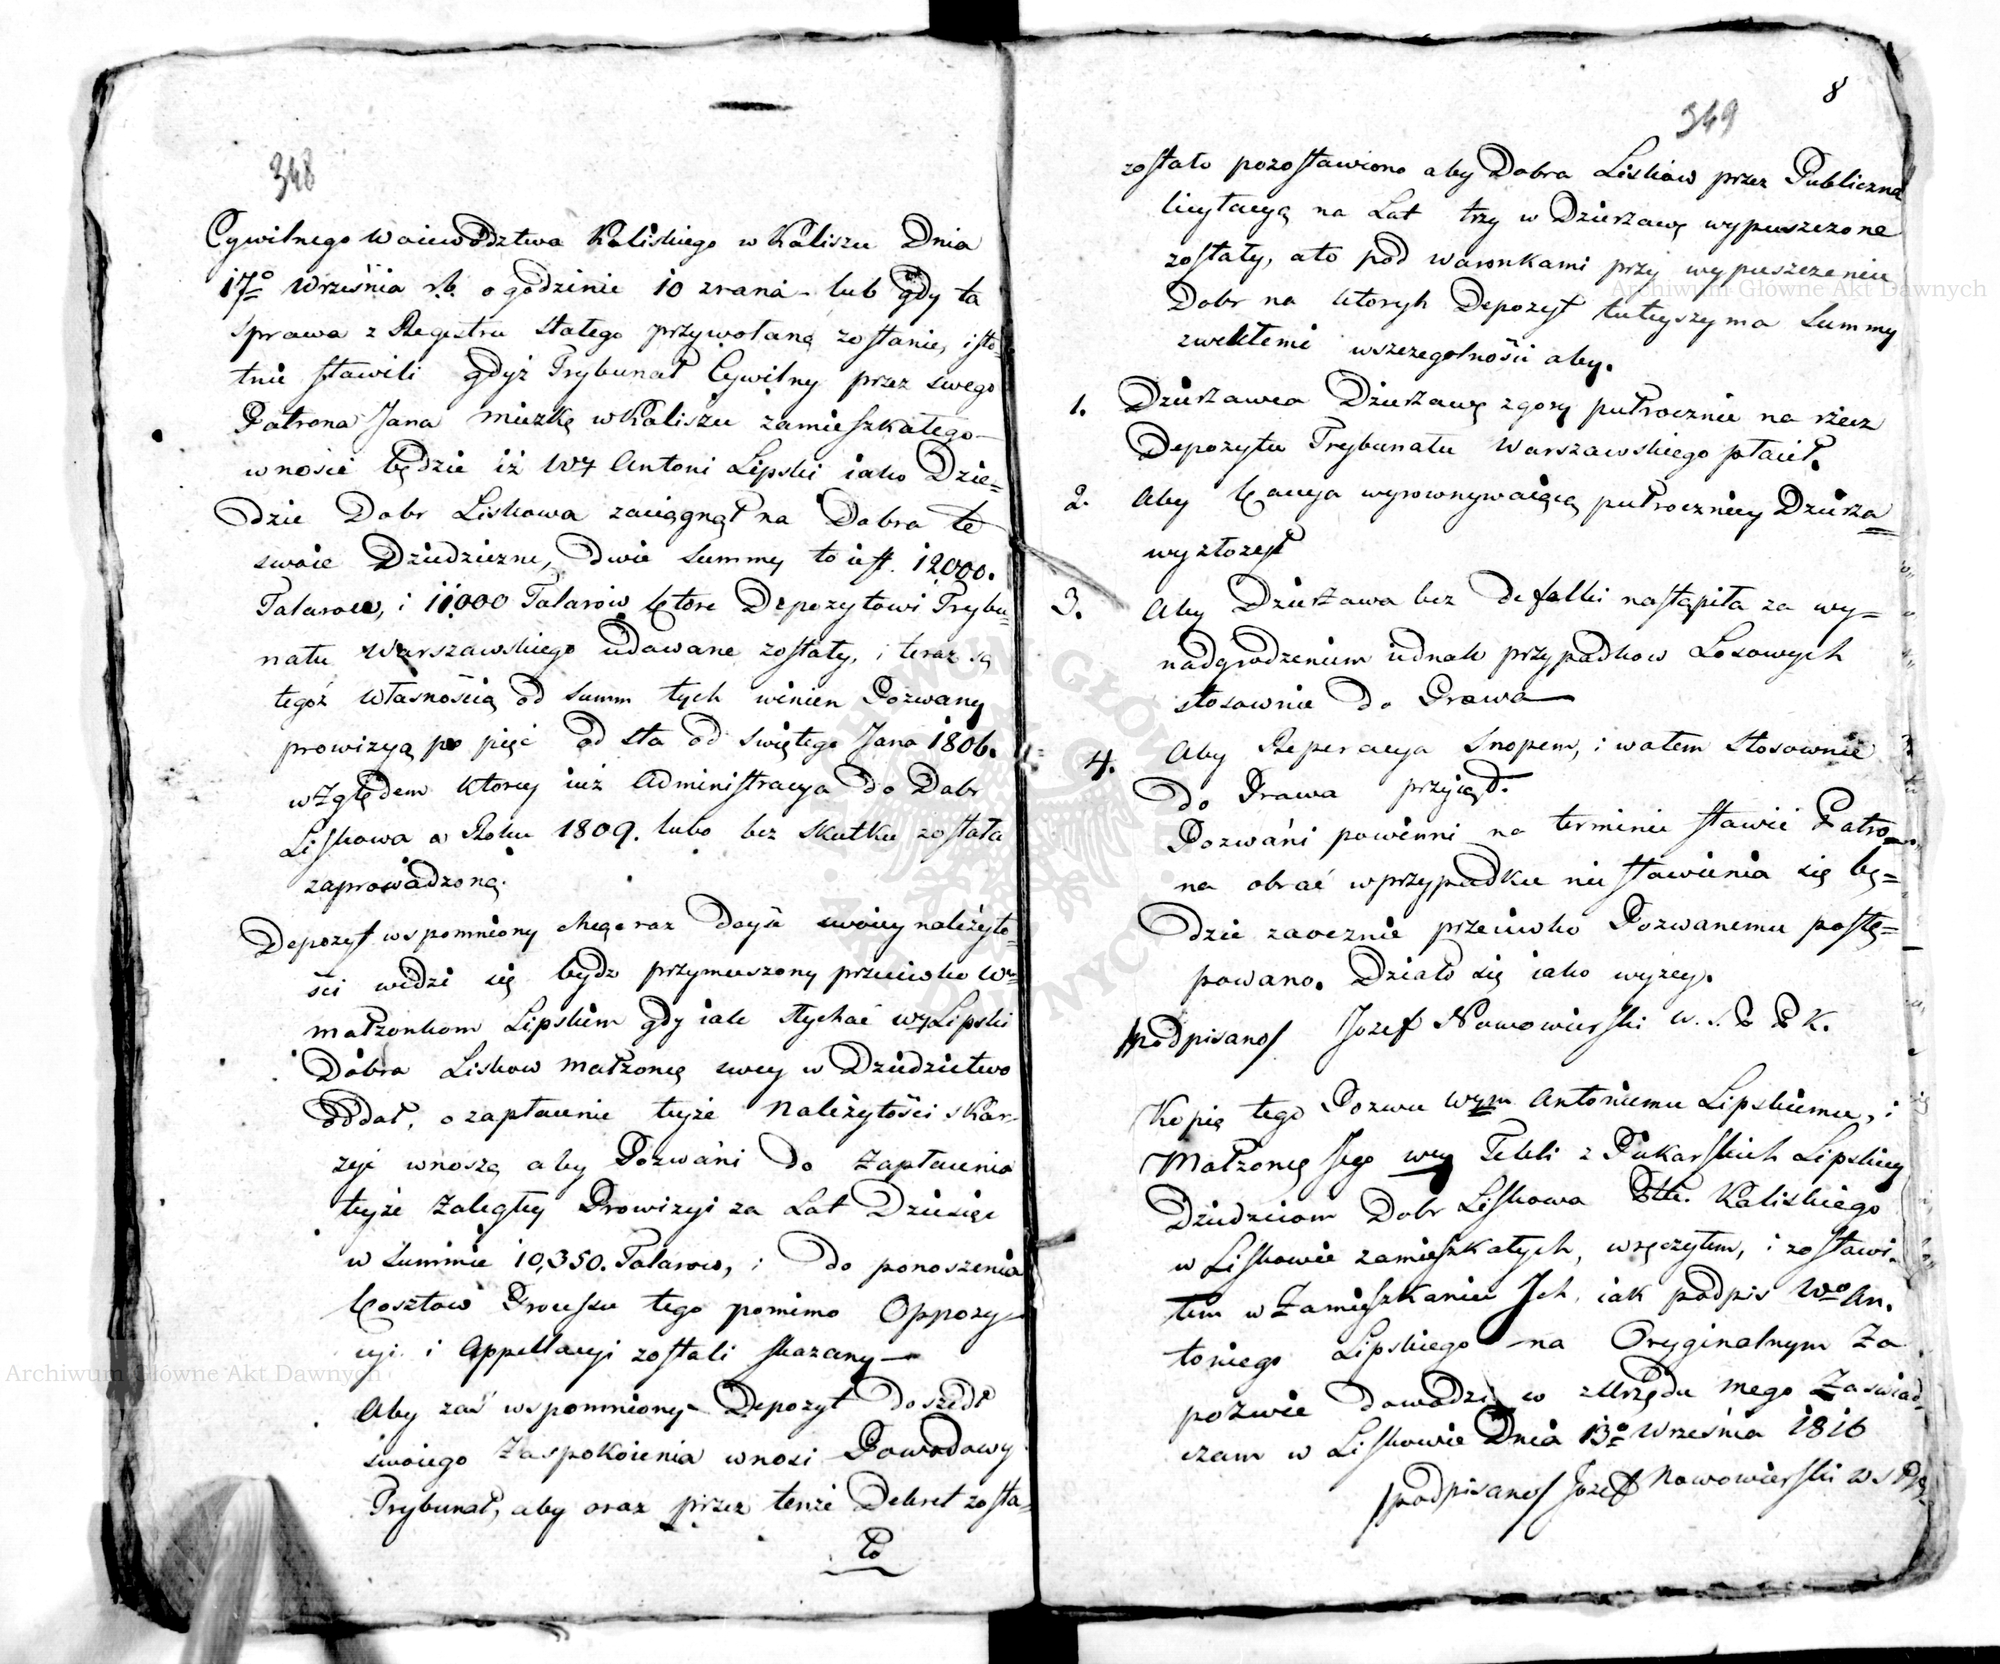 348
Cywilnego Woiewództwa Kaliskiego w Kaliszu Dnia
17º Września r.b. o godzinie 10 zrana lub gdy ta
sprawa z Regestru stałego przywołaną zostanie, isto-
tnie stawili gdyż Trybunał Cywilny przez swego
Patrona Jana w Kaliszu zamieszkałego
wnosić będzie iż Wy Antoni Lipski iako Dzie=
dzic Dobr Liskowa zaciągnął na Dobra te
swoie Dziedziczne, dwie Summy to iest 12000.
Talarow, i 11000 Talarów które Depozytowi Trybu-
natu Warszawskiego udawane zostały, i teraz są
tegoż własnością od Summ tych winien Pozwany
prowizyą po pięć od sta od Swiętego Jana 1806.
względem ktorey iuż Administracya do Dobr
Liskowa w Roku 1809. lubo bez skutku została
zaprowadzoną.
Depozyt wspomniony chcąc raz doyść swoiey należyto-
ści widzi się bydz przymuszony przeciwko
małzonkom Lipskim gdy iak słychać Wy Lipski
Dobra Liskow małzonce swey w Dziedzictwo
oddał, o zapłacenie teyże Należytości skar-
zyć wnoszą aby Pozwani do Zapłacenia
teyże zaległey Prowizyi za Lat Dziesięć
w Summie 10,350. Talarow, i do ponoszenia
kosztow Processu tego pomimo Oppozy-
cyi i Appellacyi zostali skazany
Aby zaś wspomniony Depozyt doszedł
swoiego Zaspokoienia wnosi Powodowy
Trybunał, aby oraz przez tenże Dekret zosta-
ło
8
349
zostało pozostawiono aby Dobra Liskow przez Publiczną
licytacyą na Lat trzy w Dzierzawę wypuszczone
zostały, a to pod warunkami przy wypuszczeniu
Dobr na ktorych Depozyt tuteyszy ma Summy
zwykłemi wszczególności aby.
1. Dzierzawca Dzierzawę zgory pułrocznie na rzecz
Depozytu Trybunału Warszawskiego płacił.
2. Aby kaucya wyrownywaiącą pułroczney Dzierza
wy złozył
3. Aby Dzierzawa bez defalki nastąpiła za wy=
nadgrodzeniem iednak przypadkow Losowych
stosownie do Prawa
4. Aby Reperacya Snopem, i wałem stosownie
do Prawa przyiął.
Pozwani powinni na terminie stawić Patro-
na obrać w przypadku nie stawienia się bę=
dzie zaocznie przeciwko Pozwanemu postę=
powano. Działo się iako wyzey.
/podpisano/ Jozef Nowowierski W. S. P. P. K.
Kopią tego Pozwu Wym Antoniemu Lipskiemu, i
Małzonce Jego Wey Tekli z Piekarskich Lipskiey
Dziedzicom Dobr Liskowa Ptt. Kaliskiego
w Liskowie zamieszkałych, wręczyłem, i zostawi-
łem w Zamieszkaniu Ich, iak podpis Wo An.
toniego Lipskiego na Oryginalnym Za
pozwie dowodzi, co z Urzędu mego Zaswiad-
czam w Liskowie Dnia 13º Września 1816
/podpisano/ Jozef Nowowierski W S P P
Archiwum Główne Akt Dawnych
Archiwum Główne Akt Dawnych